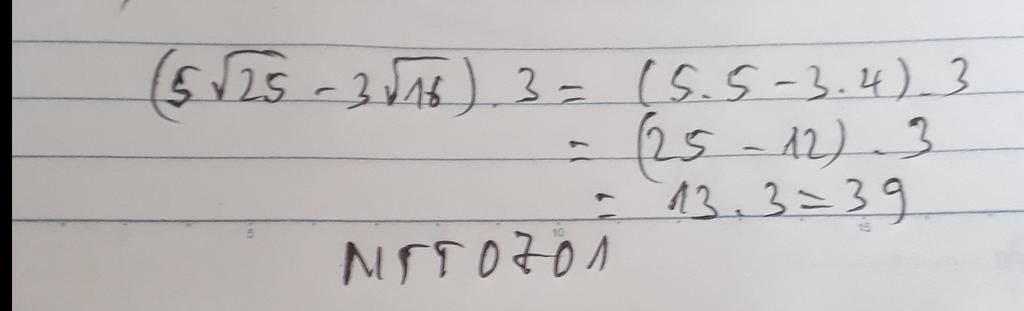 (5√25 - 3√16) . 3 = (5.5 - 3.4) . 3
= (25 - 12) . 3
= 13 . 3 = 39
5 10 15
NTT0701